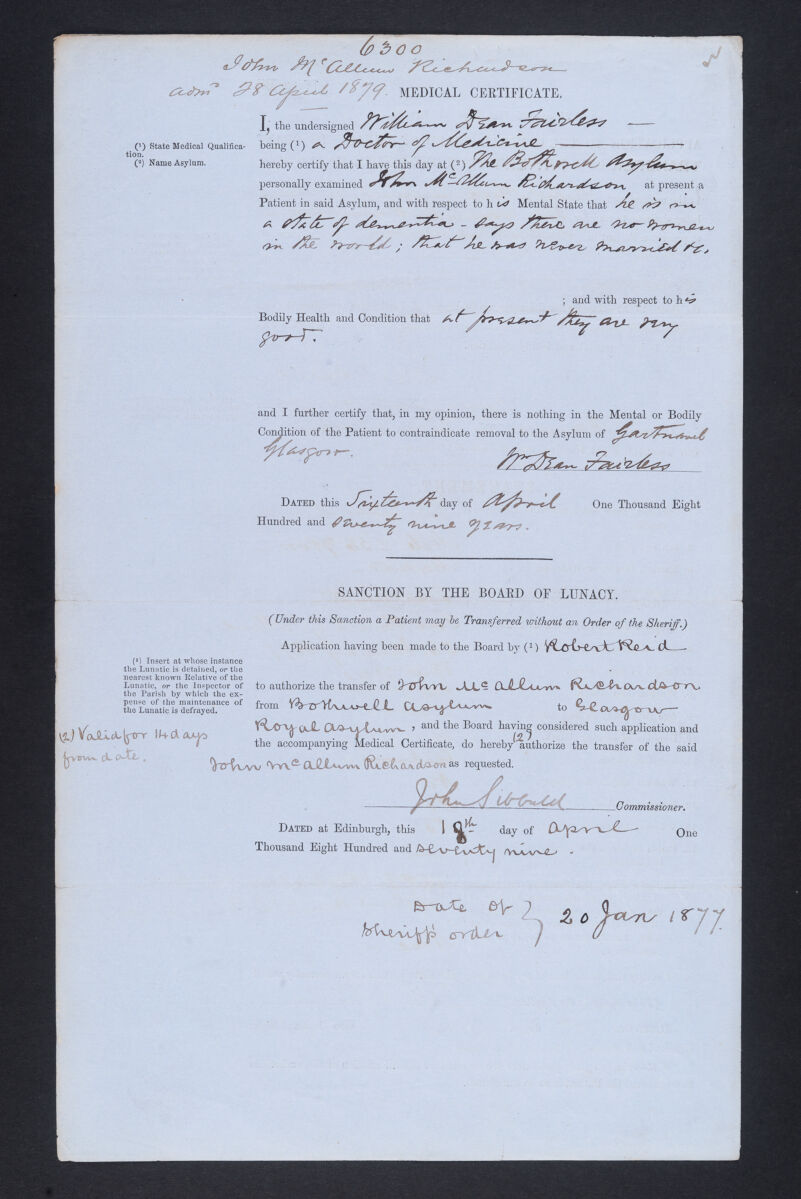 6300
John McAllum Richardson
admd 28 April 1879. MEDICAL CERTIFICATE.
I, the undersigned William Dean Fairless —
(1) State Medical Qualification.
being (1) a Doctor of Medicine
(2) Name Asylum.
hereby certify that I have this day at (2) The Bothwell Asylum
personally examined John McAllum Richardson at present a
Patient in said Asylum, and with respect to his Mental State that he is in
a state of dementia - says there are no women
in the world; that he was never married &c.
; and with respect to his
Bodily Health and Condition that at present they are very
good.
and I further certify that, in my opinion, there is nothing in the Mental or Bodily
Condition of the Patient to contraindicate removal to the Asylum of Gartnavel
Glasgow.
Wm Dean Fairless
DATED this Sixteenth day of April One Thousand Eight
Hundred and seventy nine years.
SANCTION BY THE BOARD OF LUNACY.
(Under this Sanction a Patient may be Transferred without an Order of the Sheriff.)
Application having been made to the Board by (1) Robert Reid
(1) Insert at whose instance
the Lunatic is detained, or the
nearest known Relative of the
Lunatic, or the Inspector of
the Parish by which the ex-
pense of the maintenance of
the Lunatic is defrayed.
to authorize the transfer of John McAllum Richardson
from Bothwell Asylum to Glasgow
Royal Asylum, and the Board having considered such application and
(2) Valid for 14 days
from date.
the accompanying Medical Certificate, do hereby (2) authorize the transfer of the said
John McAllum Richardson as requested.
John Sibbald Commissioner.
DATED at Edinburgh, this 18th day of April One
Thousand Eight Hundred and seventy nine.
Date of } 20 Jan 1877.
Sheriff's order